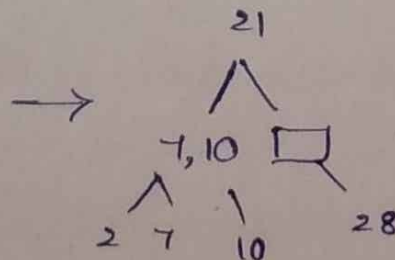 21
7,10
2 7 10 28